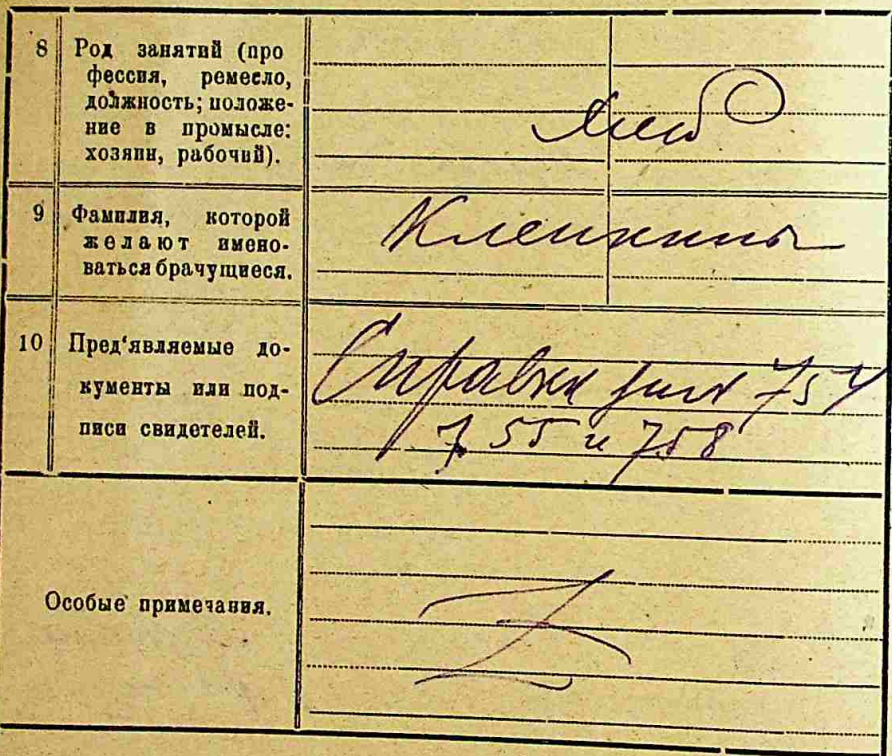 8 Род занятий (про
фессия, ремесло,
должность; положе-
ние в промысле:
хозяин, рабочий).
Хлеб
9 Фамилия, которой
желают имено-
ваться брачущиеся.
10 Пред'являемые до-
кументы или под-
писи свидетелей.
Справки 754
755 и 758
Особые примечания.